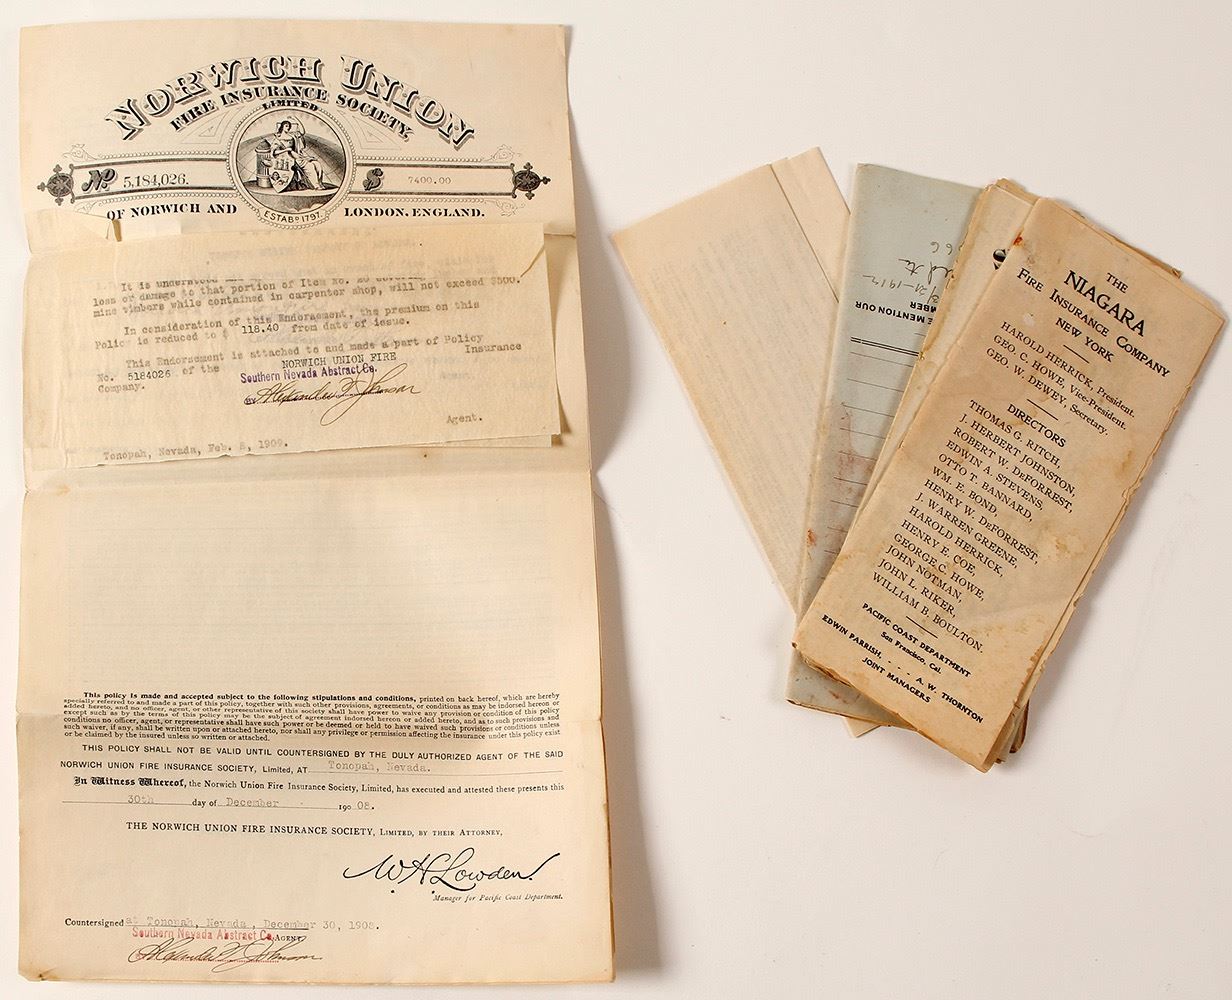 NORWICH UNION
FIRE INSURANCE SOCIETY,
LIMITED
No 5,184,026. $ 7400.00
OF NORWICH AND ESTABD 1797. LONDON, ENGLAND.
It is understood and
loss or damage to that portion of Item No. 20 covering
mine timbers while contained in carpenter shop, will not exceed $500.
In consideration of this Endorsement, the premium on this
Polic is reduced to $ 118.40 from date of issue.
This Endorsement is attached to and made a part of Policy
No. 5184026 of the NORWICH UNION FIRE Insurance
Company.
Southern Nevada Abstract Co.
BY
Agent.
Tonopah, Nevada, Feb. 8, 1909.
This policy is made and accepted subject to the following stipulations and conditions, printed on back hereof, which are hereby
specially referred to and made a part of this policy, together with such other provisions, agreements, or conditions as may be indorsed hereon or
added hereto, and no officer, agent, or other representative of this society shall have power to waive any provision or condition of this policy
except such as by the terms of this policy may be the subject of agreement indorsed hereon or added hereto, and as to such provisions and
conditions no officer, agent, or representative shall have such power or be deemed or held to have waived such provisions or conditions unless
such waiver, if any, shall be written upon or attached hereto, nor shall any privilege or permission affecting the insurance under this policy exist
or be claimed by the insured unless so written or attached.
THIS POLICY SHALL NOT BE VALID UNTIL COUNTERSIGNED BY THE DULY AUTHORIZED AGENT OF THE SAID
NORWICH UNION FIRE INSURANCE SOCIETY, Limited, AT Tonopah, Nevada.
In Witness Whereof, the Norwich Union Fire Insurance Society, Limited, has executed and attested these presents this
30th day of December 190 08.
THE NORWICH UNION FIRE INSURANCE SOCIETY, LIMITED, BY THEIR ATTORNEY,
W H Lowden
Manager for Pacific Coast Department.
Countersigned at Tonopah, Nevada, December 30, 1908.
Southern Nevada Abstract Co. AGENT
E MENTION OUR
MBER
THE
NIAGARA
FIRE INSURANCE COMPANY
NEW YORK
HAROLD HERRICK, President.
GEO. C. HOWE, Vice-President.
GEO. W. DEWEY, Secretary.
DIRECTORS
THOMAS G. RITCH,
J. HERBERT JOHNSTON,
ROBERT W. DEFORREST,
EDWIN A. STEVENS,
OTTO T. BANNARD,
WM. E. BOND,
HENRY W. DEFORREST,
J. WARREN GREENE,
HAROLD HERRICK,
HENRY E. COE,
GEORGE C. HOWE,
JOHN NOTMAN,
JOHN L. RIKER,
WILLIAM B. BOULTON.
PACIFIC COAST DEPARTMENT
San Francisco, Cal.
EDWIN PARRISH, - - - - A. W. THORNTON
JOINT MANAGERS